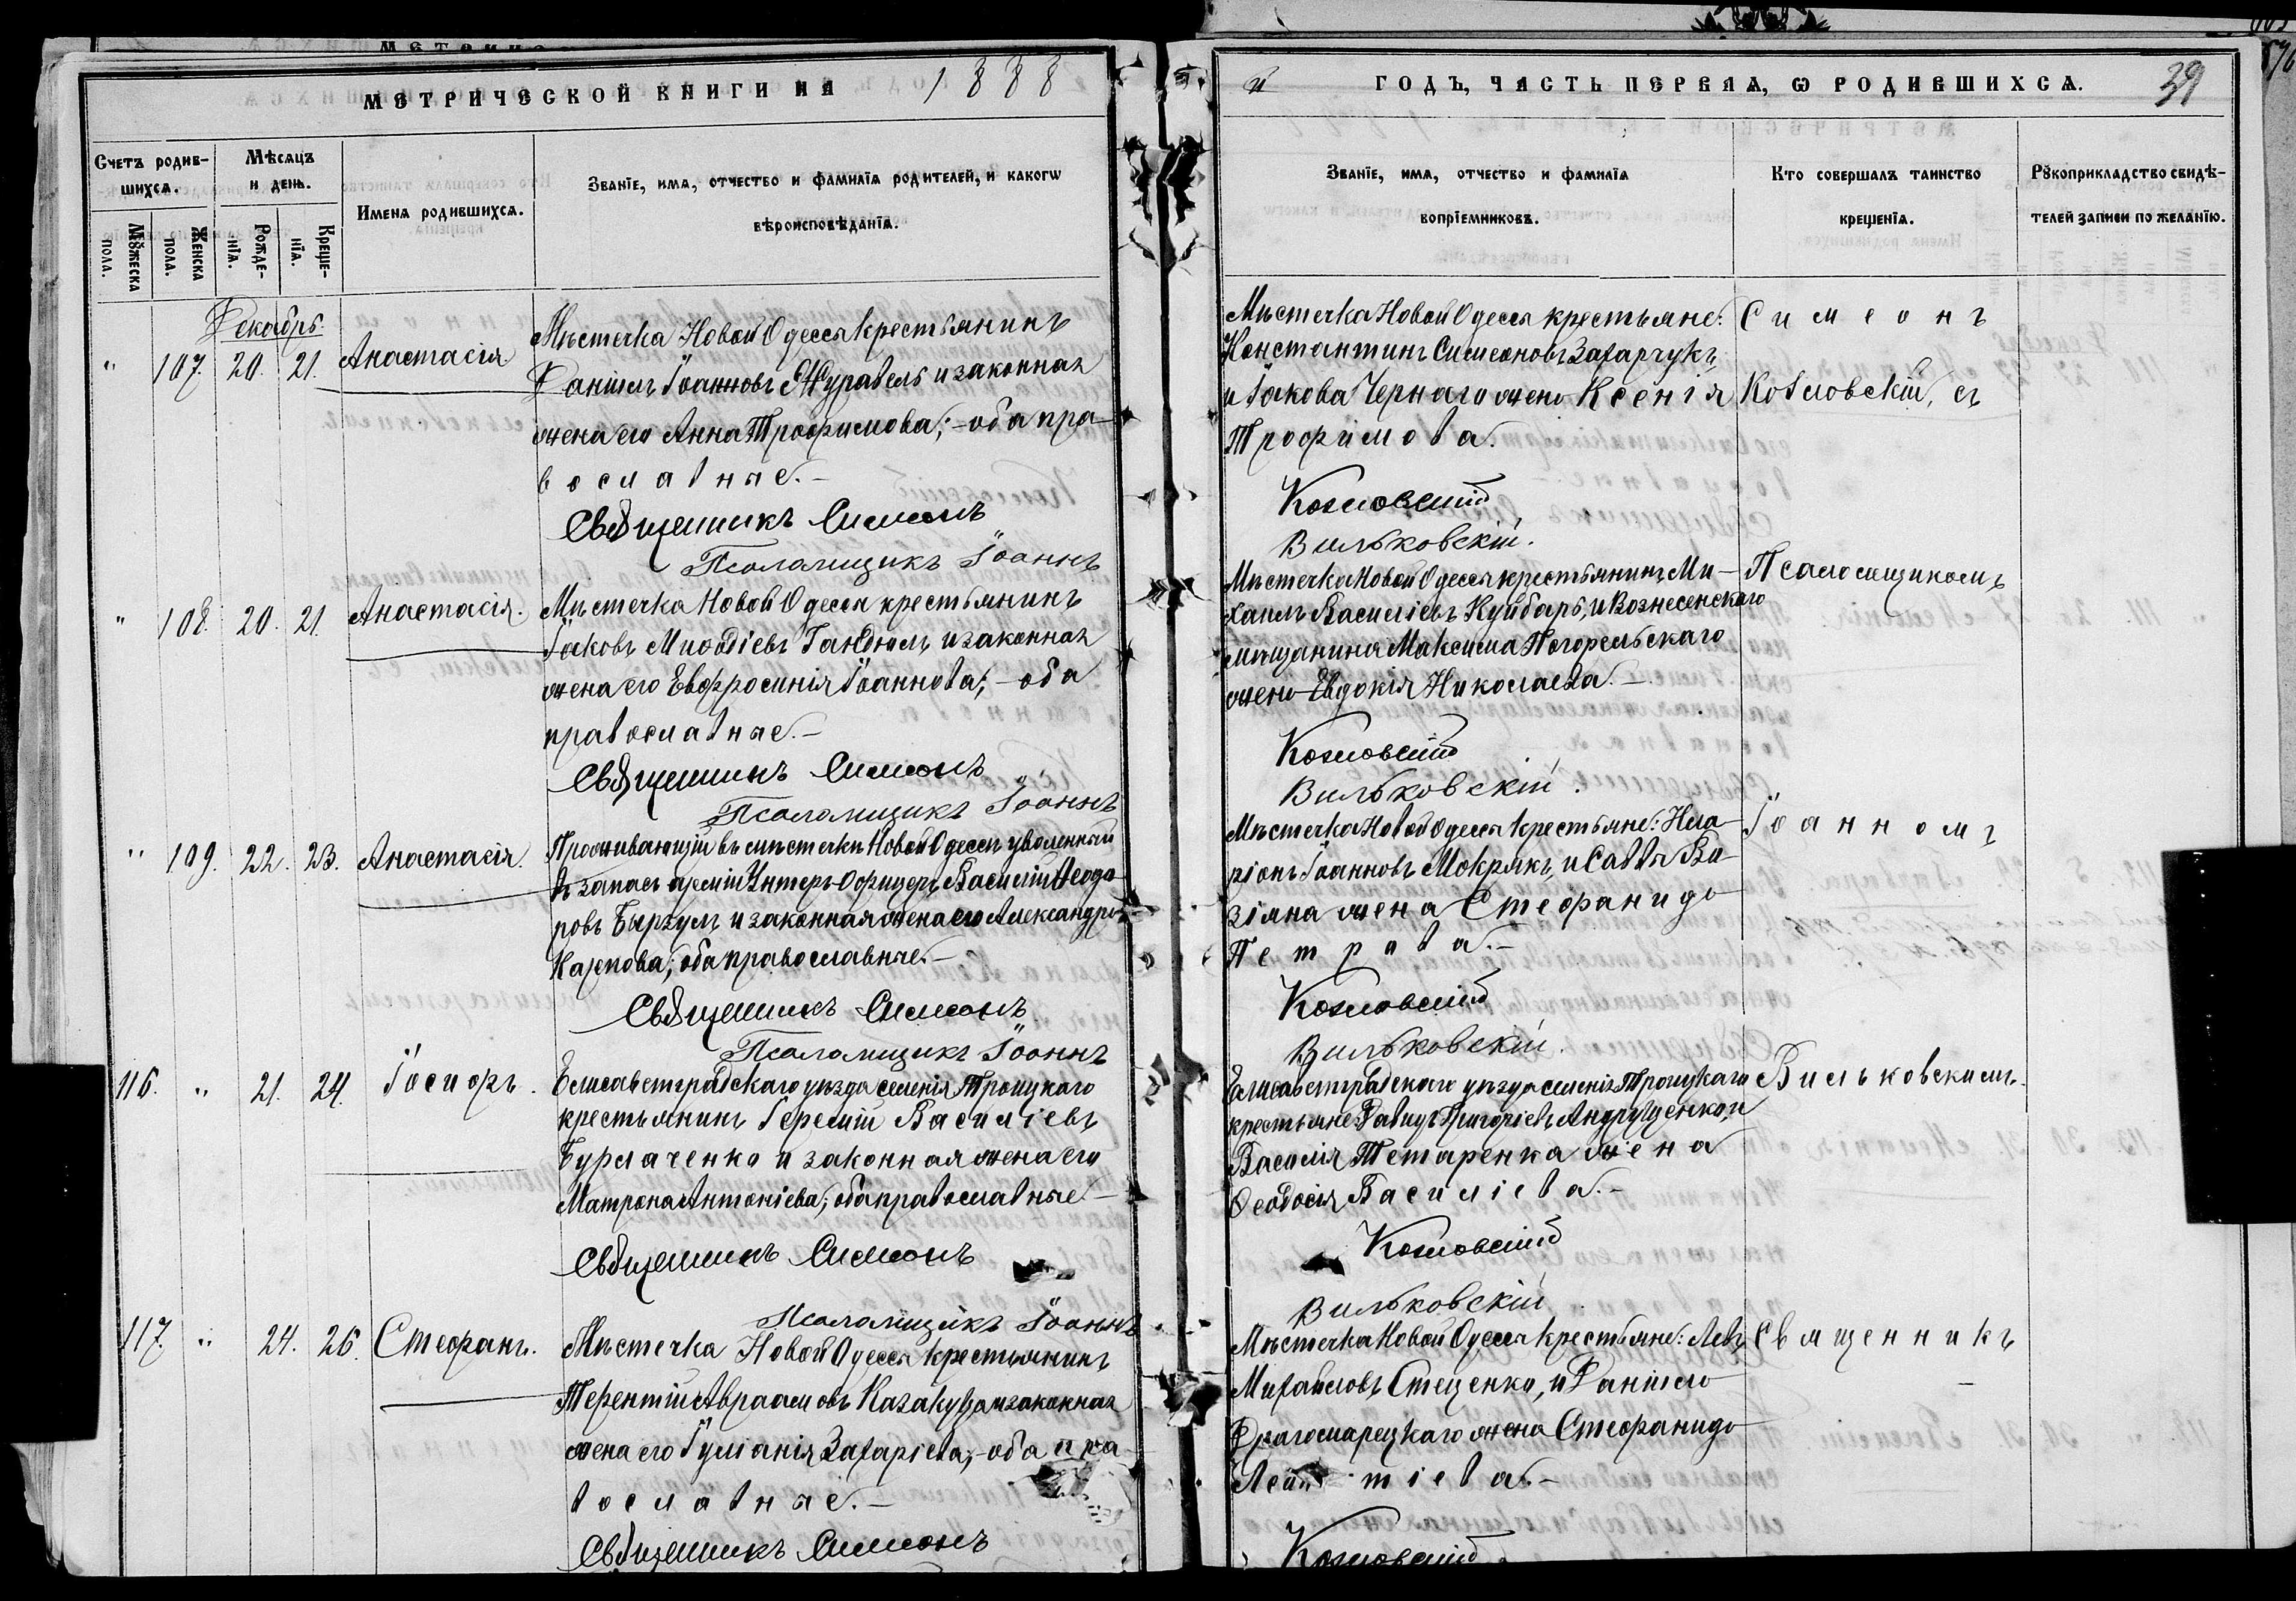 МЕТРИЧЕСКОЙ КНИГИ НА 1888
Счетъ родив-
шихся.
Мѣсяцъ
и день.
Имена родившихся.
Званїе, имя, отчество и фамилїя родителей, и какогѡ
вѣроисповѣданїя.
Мꙋжеска
пола.
Женска
пола.
Рожде-
нїя.
Креще-
нїя.
Декабрь.
" 107. 20. 21. Анастасія
Мѣстечка Новой Одессы крестьянинъ
Даніилъ Іоанновъ Журавель и законная
жена его Анна Трофимова; – оба пра-
вославные. –
Священникъ Симеонъ
Псаломщикъ Іоаннъ
" 108. 20. 21. Анастасія.
Мѣстечка Новой Одессы крестьянинъ
Іаковъ Миѳодіевъ Гандюлъ и законная
жена его Евфросинія Іоаннова; – оба
православные. –
Священникъ Симеонъ
Псаломщикъ Іоаннъ
" 109. 22. 23. Анастасія.
Проживающій въ мѣстечкѣ Новой Одессѣ уволенный
въ запасъ арміи Унтеръ-Офицеръ Василій Ѳеодо-
ровъ Быргулъ и законная жена его Александра
Карпова; оба православные. –
Священникъ Симеонъ
Псаломщикъ Іоаннъ
116. " 21. 24. Іосифъ.
Елисаветградскаго уѣзда селенія Троицкаго
крестьянинъ Іеремій Василіевъ
Бурлаченко и законная жена его
Матрона Антоніева; оба православные –
Священникъ Симеонъ
Псаломщикъ Іоаннъ
117. " 24. 26. Стефанъ.
Мѣстечка Новой Одессы крестьянинъ
Терентій Авраамовъ Казакуца и законная
жена его Іуліанія Захаріева; – оба пра-
вославные. –
Священникъ Симеонъ
й ГОДЪ, ЧАСТЬ ПЕРВАЯ, Ѡ РОДИВШИХСЯ. 39
Званїе, имя, отчество и фамилїя
вопрїемниковъ.
Кто совершалъ таинство
крещенїя.
Рꙋкоприкладство свидѣ-
телей записи по желанїю.
Мѣстечка Новой Одессы крестьяне:
Константинъ Симеоновъ Захарчукъ
и Іакова Чернаго жена Ксенія
Трофимова.
Симеонъ
Козловскій, съ
Козловскій
Вильковскій.
Мѣстечка Новой Одессы крестьянинъ Ми-
хаилъ Василіевъ Куйбарь, и Вознесенскаго
мѣщанина Максима Погорельскаго
жена Евдокія Николаева. –
Псаломщикомъ
Козловскій
Вильковскій.
Мѣстечка Новой Одессы крестьяне: Ила-
ріонъ Іоанновъ Мокрякъ, и Саввы Ва-
зіяна жена Стефанида
Петрова. –
Іоанномъ
Козловскій
Вильковскій.
Елисаветградскаго уѣзда селенія Троицкаго
крестьяне: Давидъ Григоріевъ Андрущенко, и
Василія Тетаренка жена
Ѳеодосія Василіева. –
Вильковскимъ.
Козловскій
Вильковскій
Мѣстечка Новой Одессы крестьяне: Левъ
Михайловъ Стеценко, и Даніила
Драгомарецкаго жена Стефанида
Священникъ
Козловскій